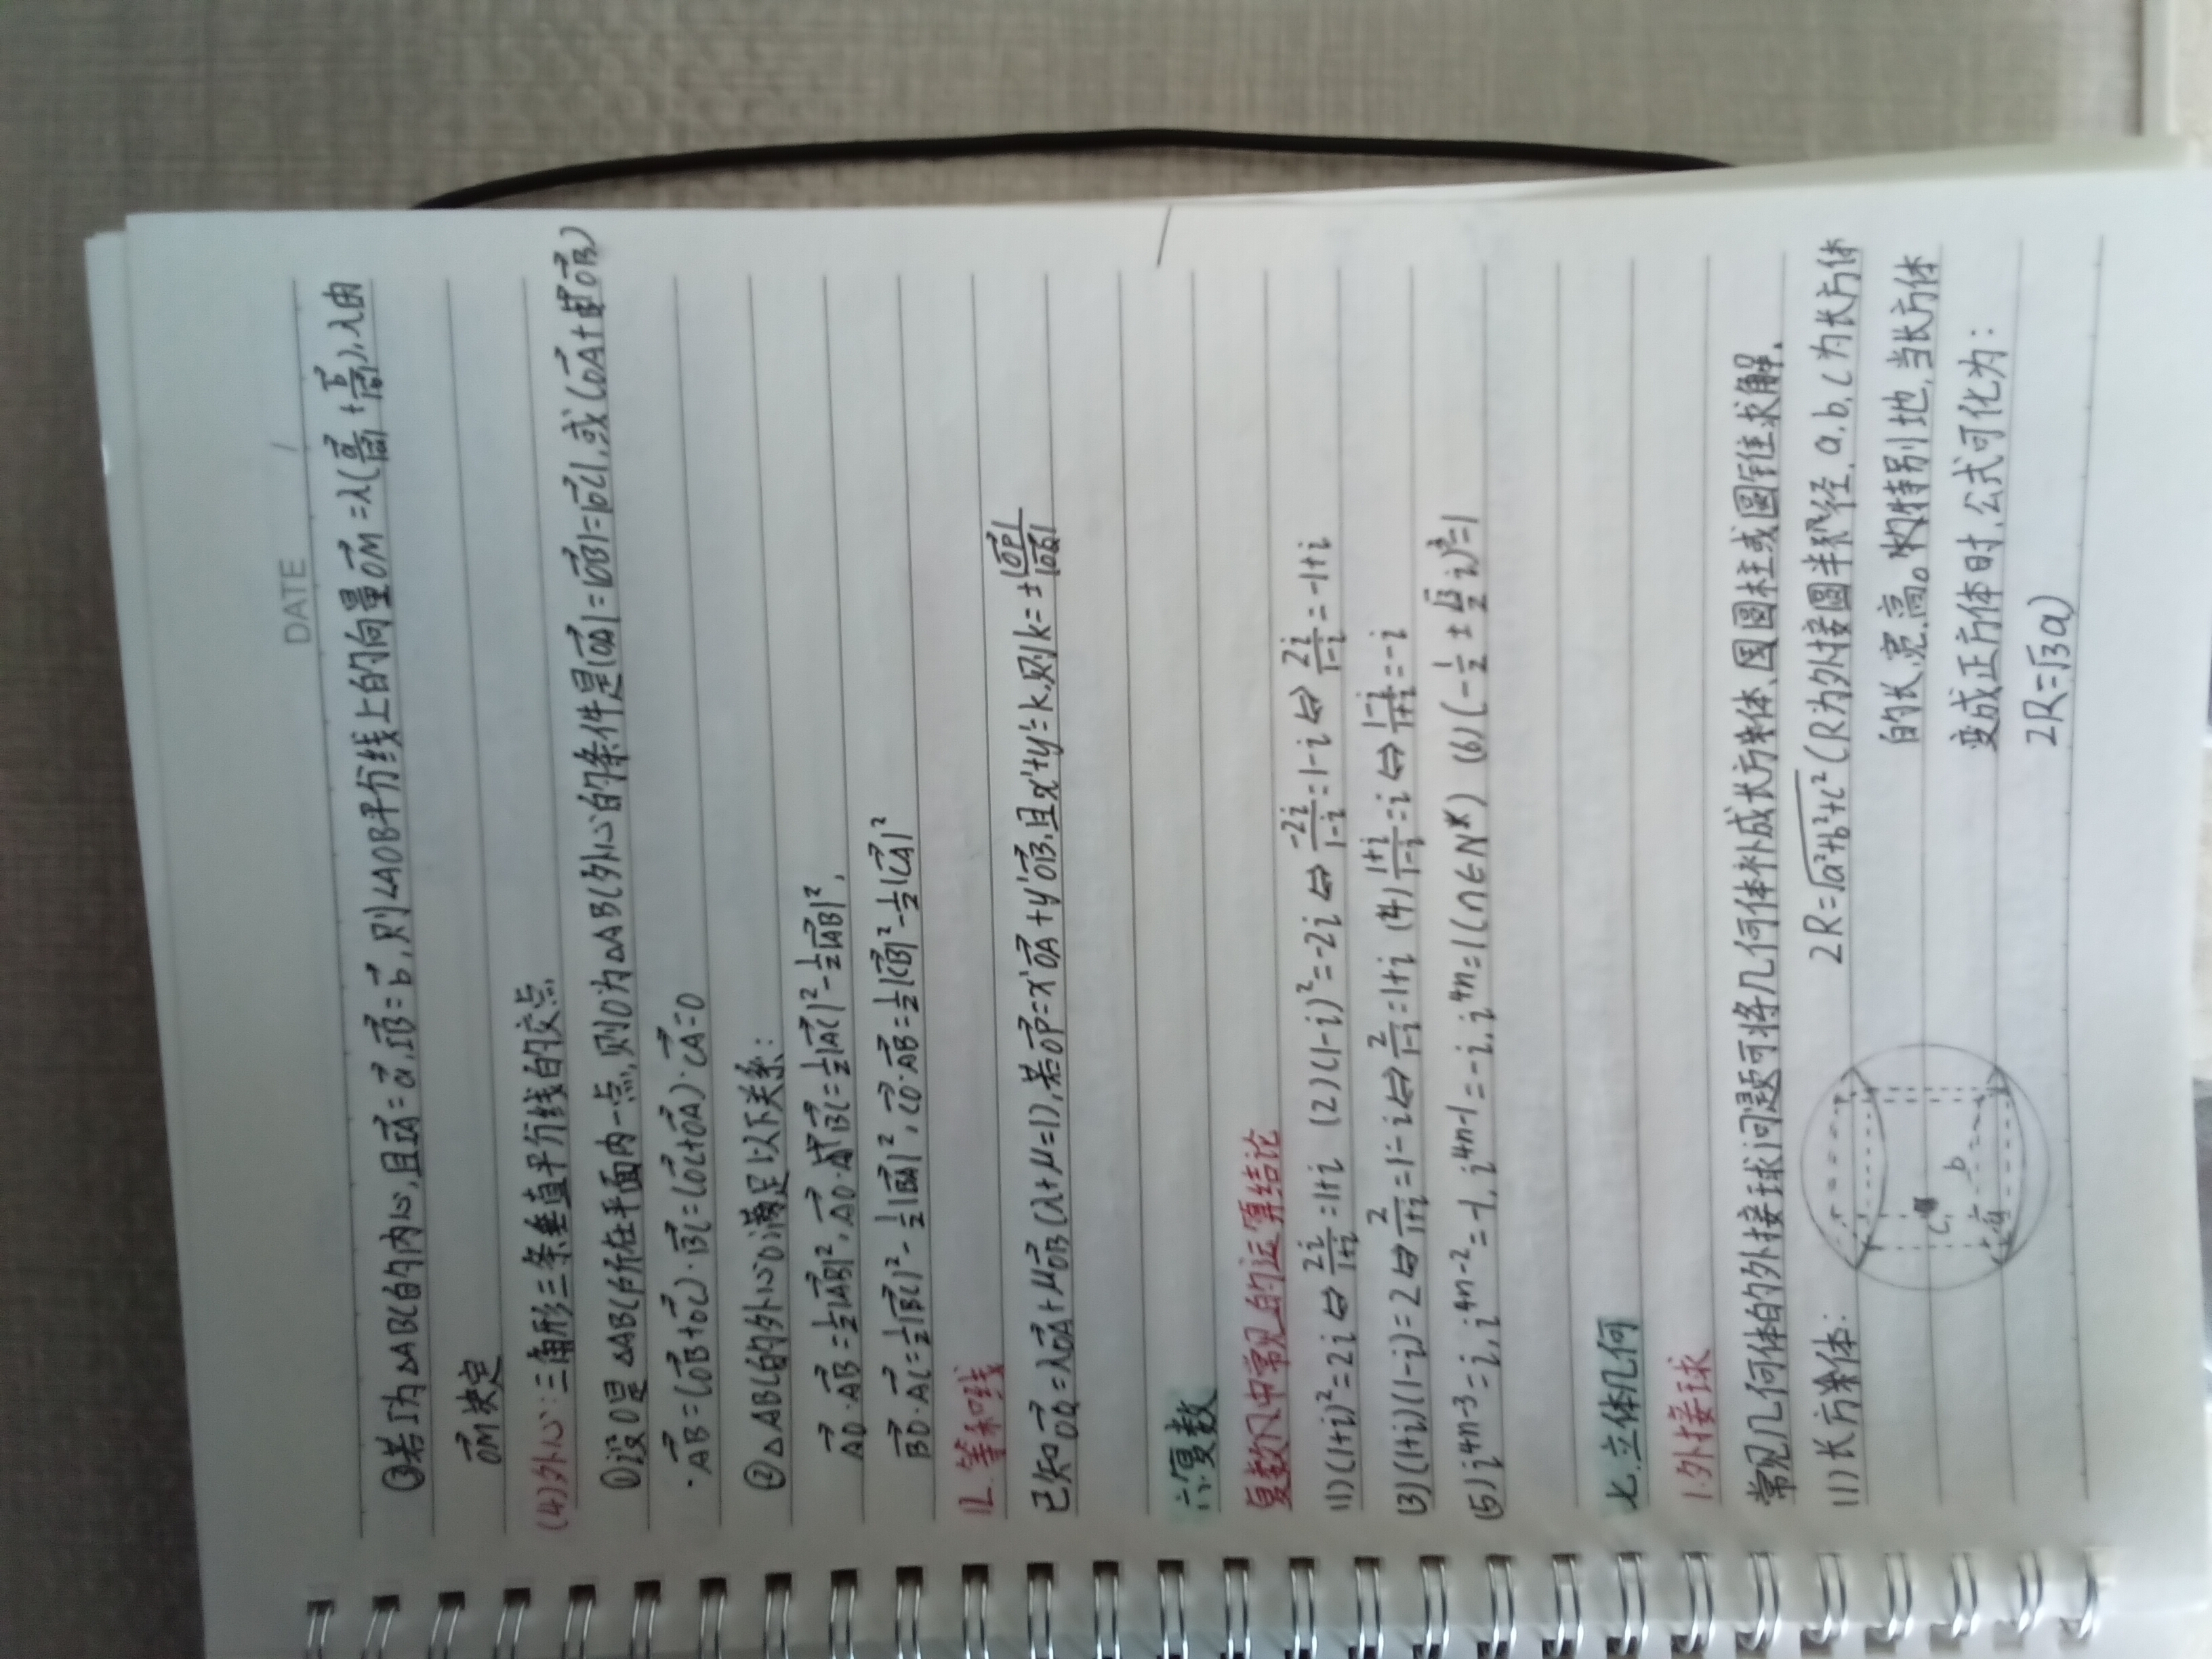 DATE /
③若I为△ABC的内心,且IA=a,IB=b,则∠AOB平分线上的向量OM=λ(a/|a|+b/|b|),λ由
OM决定
(4)外心:三角形三条垂直平分线的交点
①设O是△ABC所在平面内一点,则O为△ABC外心的条件是|OA|=|OB|=|OC|,或(OA+OB)
·AB=(OB+OC)·BC=(OC+OA)·CA=0
②△ABC的外心O满足以下关系:
AO·AB=½|AB|²,AO·BC=½|AC|²-½|AB|²,
BO·AC=½|BC|²-½|BA|²,CO·AB=½|CB|²-½|CA|²
12.等和线
已知OQ=λOA+μOB(λ+μ=1),若OP=x'OA+y'OB,且x'+y'=k,则k=±|OP|/|OQ|
六.复数
复数中常见的运算结论
(1)(1+i)²=2i⇔2i/(1+i)=1+i (2)(1-i)²=-2i⇔-2i/(1-i)=1-i⇔2i/(1-i)=-1+i
(3)(1+i)(1-i)=2⇔2/(1+i)=1-i⇔2/(1-i)=1+i (4)(1+i)/(1-i)=i⇔(1-i)/(1+i)=-i
(5)i⁴ⁿ⁻³=i,i⁴ⁿ⁻²=-1,i⁴ⁿ⁻¹=-i,i⁴ⁿ=1(n∈N*) (6)(-½±√3/2 i)³=1
七.立体几何
1.外接球
常见几何体的外接球问题可将几何体补成长方体、圆柱或圆锥求解.
(1)长方体: 2R=√(a²+b²+c²)(R为外接圆半径,a,b,c为长方体
的长、宽、高。特别地,当长方体
变成正方体时,公式可化为:
2R=√3a
c
b
a